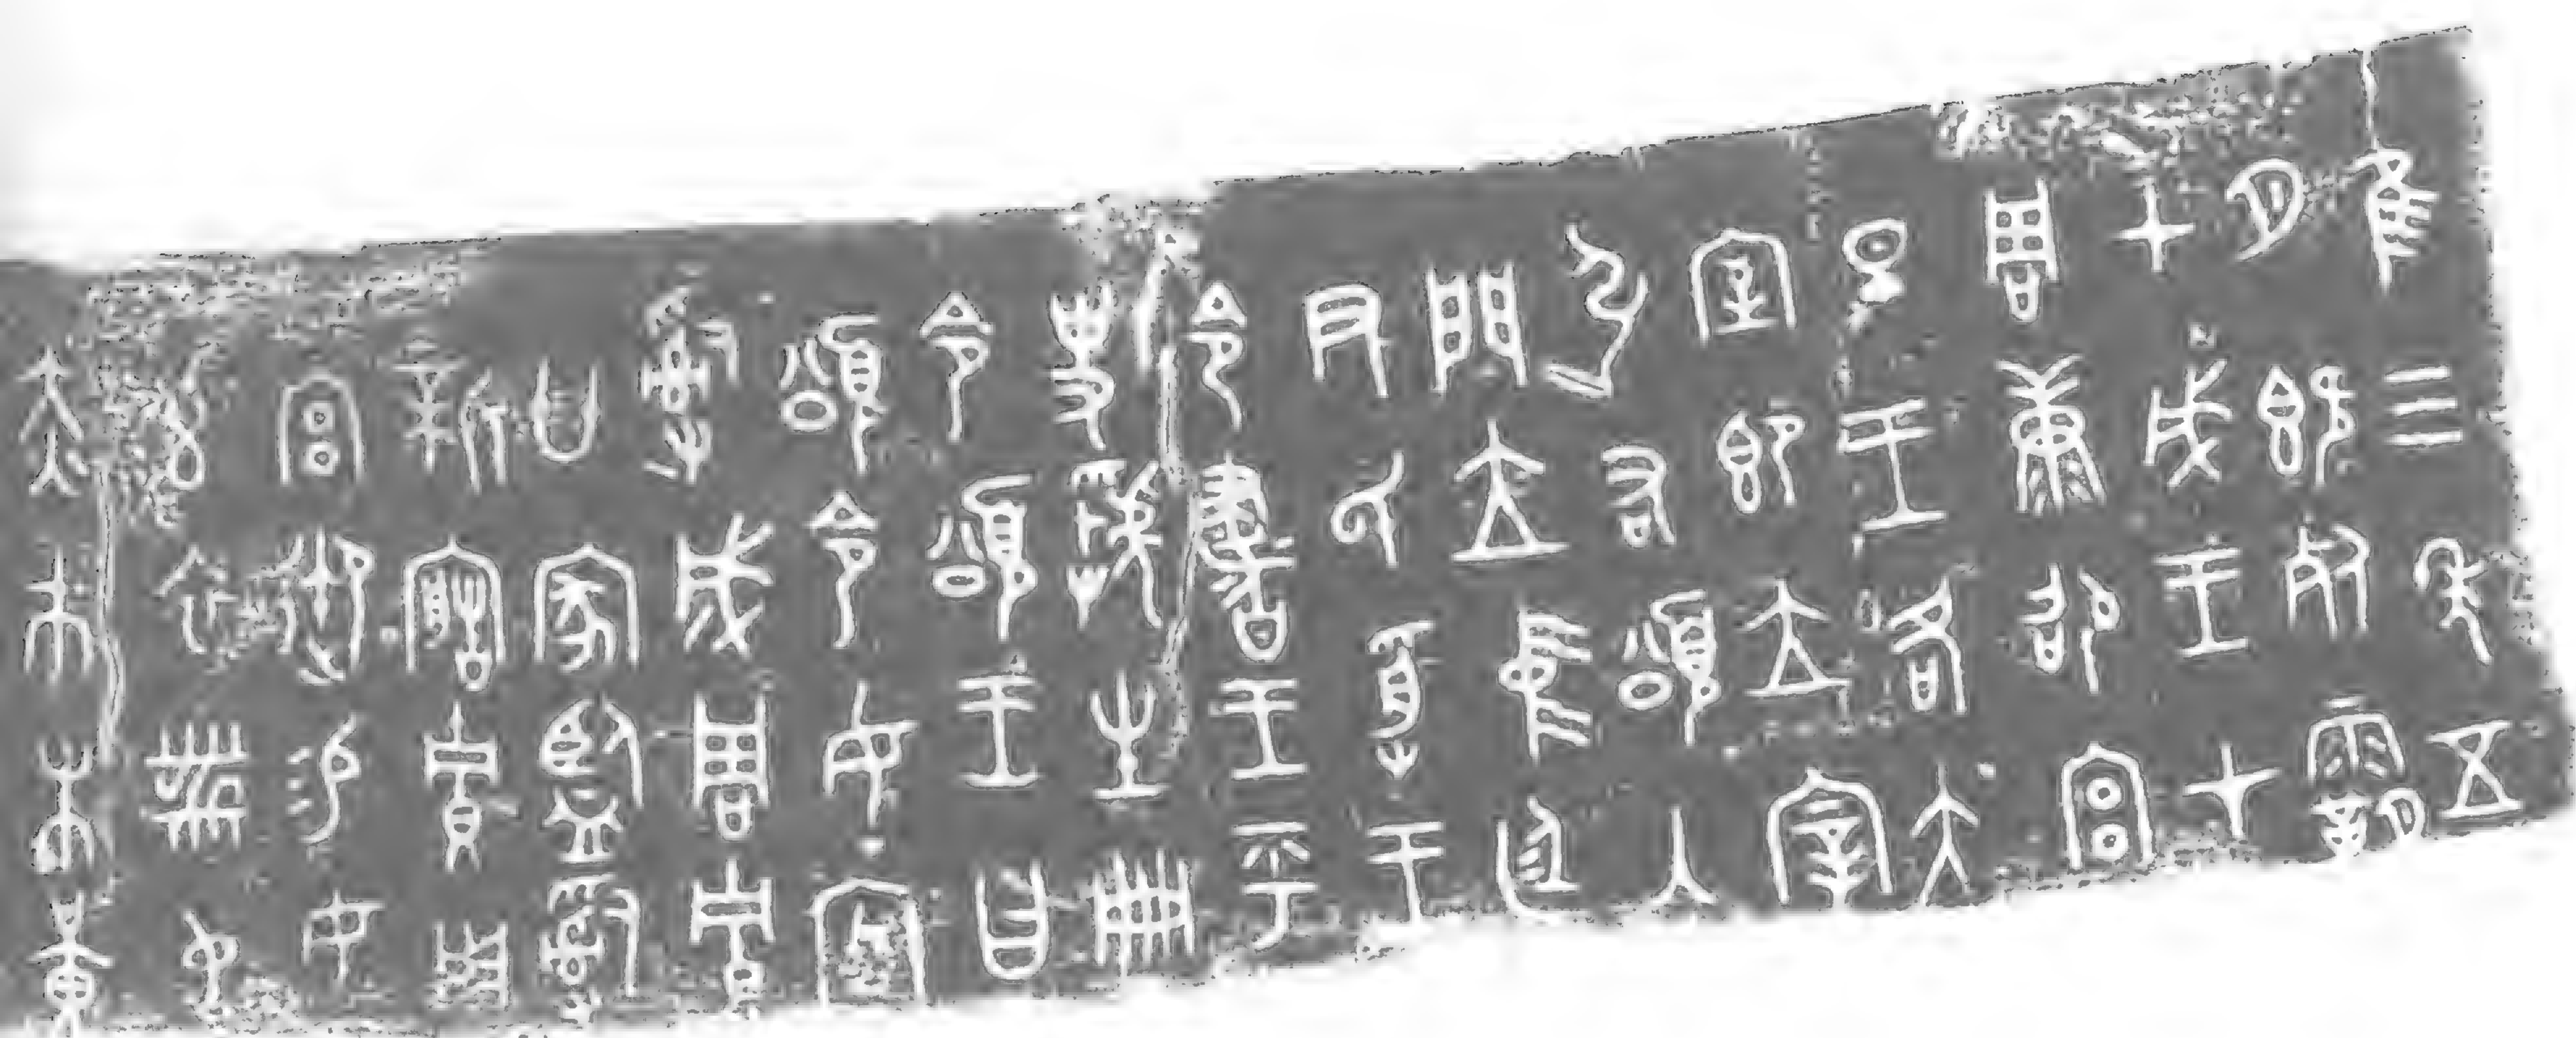 隹三年五
月既死霸
甲戌王才
周康卲宮
旦王各大
室即立宰
弘右頌入
門立中廷
尹氏受王
令書王乎
史虢生冊
令頌王曰
頌令女官
𤔲成周貯
廿家監𤔲
新造貯用
宮御易女
玄衣黹屯
赤巿朱黃